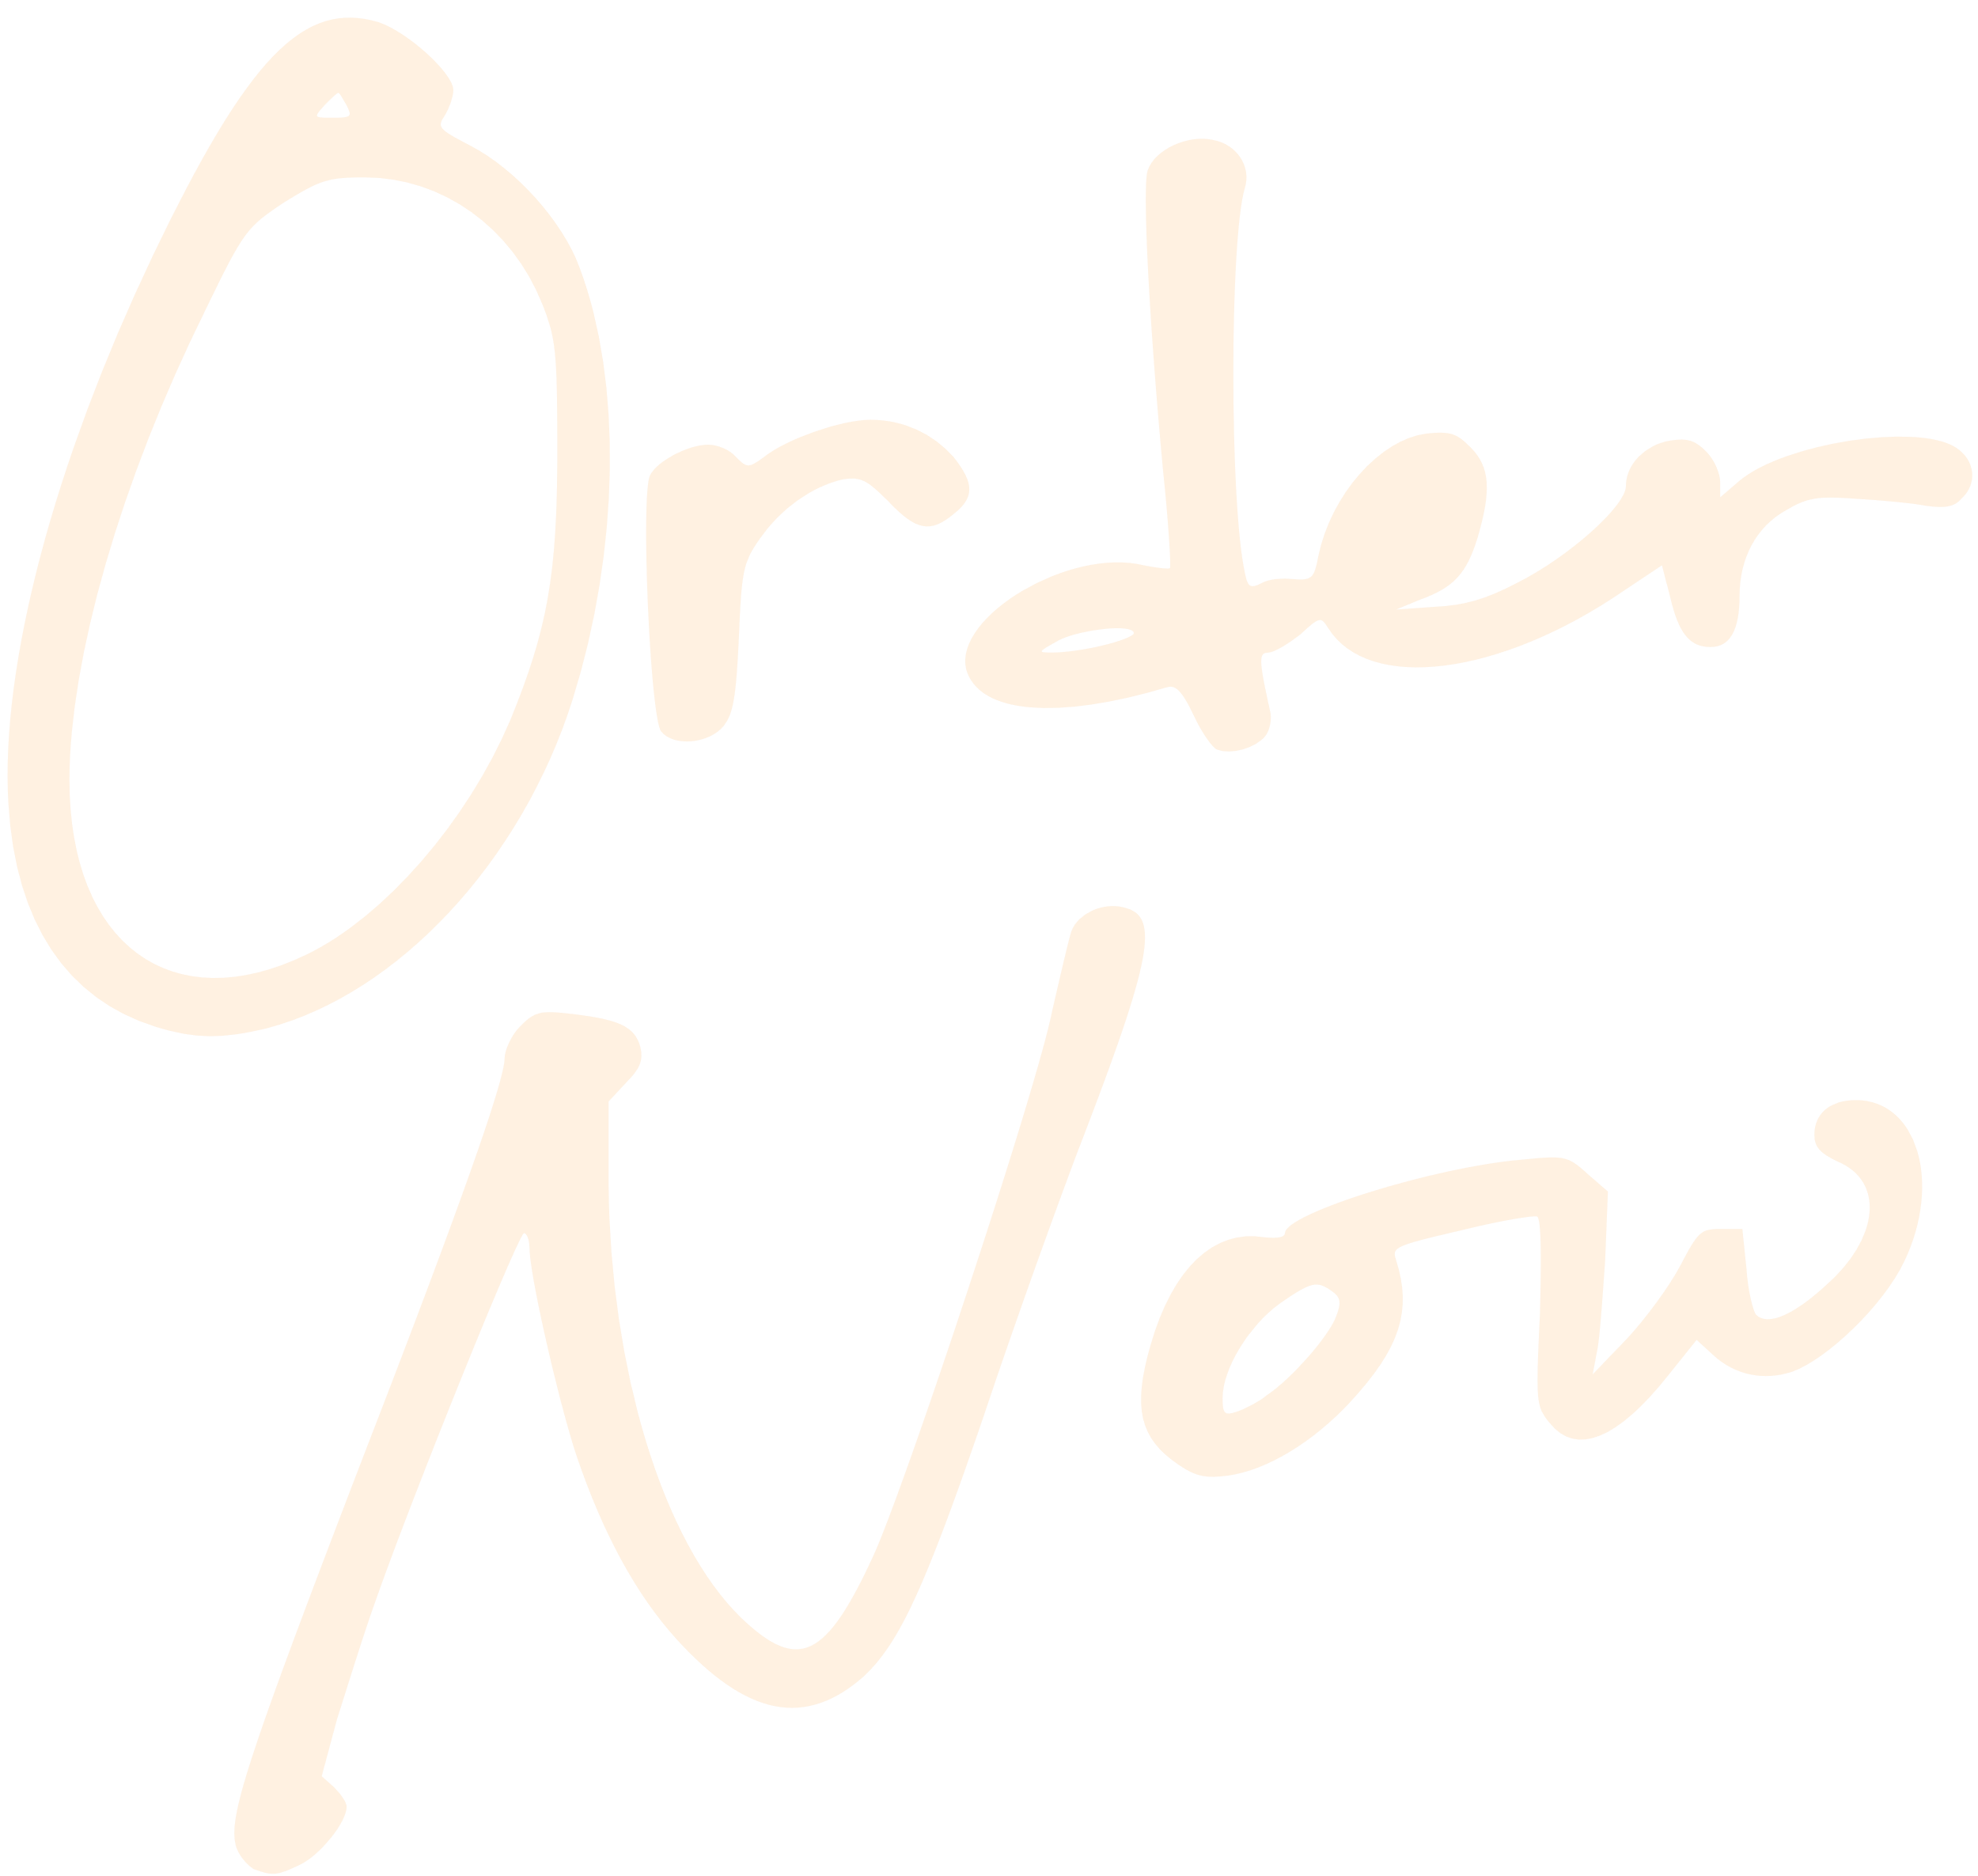 Order
Now